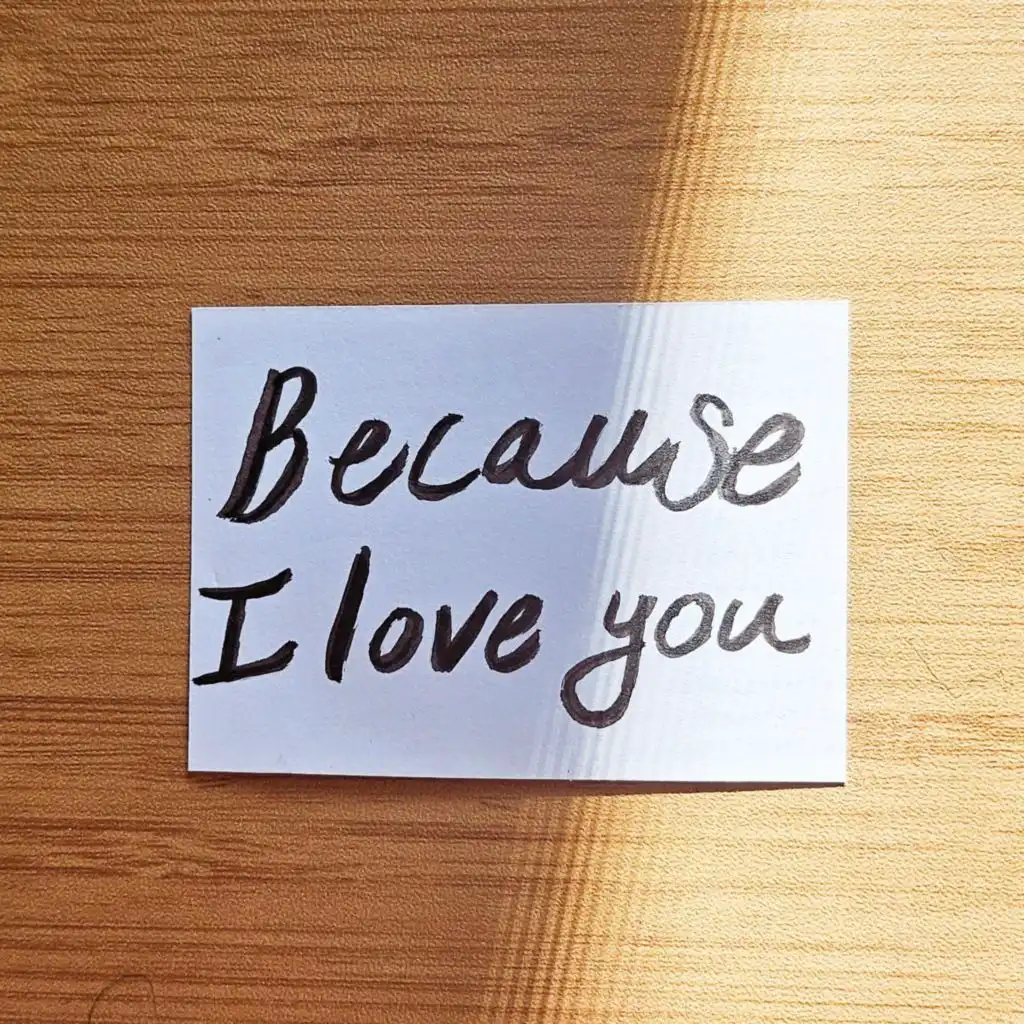 Because
I love you